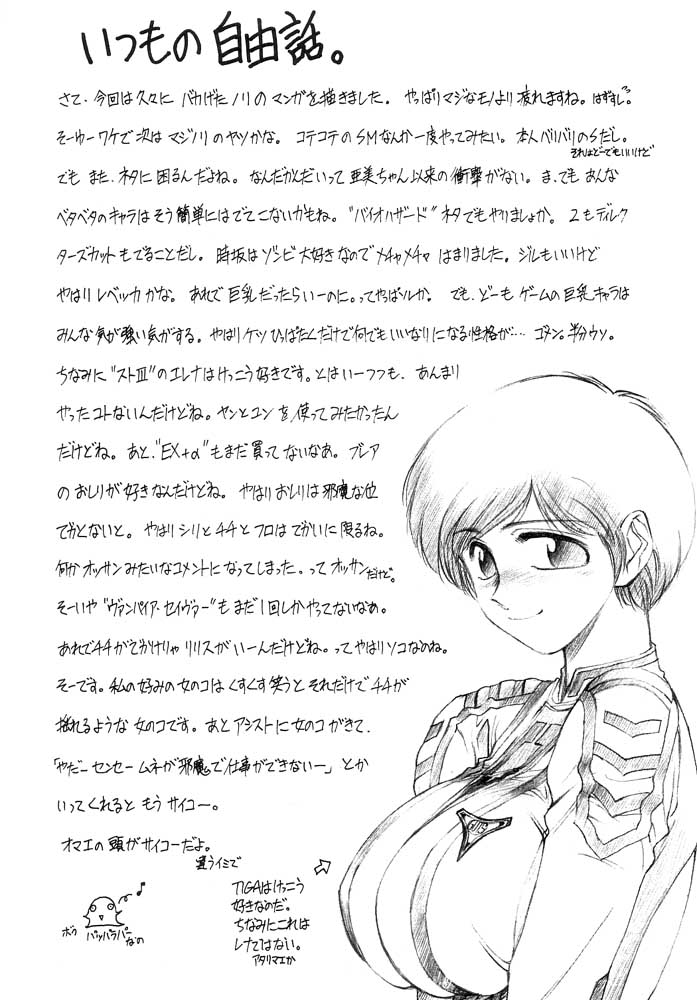 いつもの 自由話。
さて、今回は久々に バカげたノリのマンガを描きました。 やっぱりマジなモノより 疲れますね。はずすし。
そーゆーワケで次は マジノリのヤツかな。 コテコテのSMなんか一度やってみたい。 本人バリバリのSだし。
それはどーでもいいけど
でも また、ネタに 困るんだよね。 なんだかんだいって 亜美ちゃん以来の衝撃がない。 ま、でも あんな
ベタベタのキャラは そう簡単にはでてこないかもね。 "バイオハザード"ネタでもやりましょか。 2もディレク
ターズカットもでることだし。 時坂はゾンビ大好きなので メチャメチャ はまりました。 ジルもいいけど
やはりレベッカかな。 あれで 巨乳だったらいーのに。ってやっぱソレか。 でも、どーも ゲームの巨乳キャラは
みんな気が強い気がする。 やはりケツひっぱたくだけで何でもいいなりになる性格が… コタン。半分ウソ。
ちなみに "ストⅢ"のエレナはけっこう好きです。とはいーつつも、あんまり
やったコトないんだけどね。 ヤンとユン を使ってみたかったん
だけどね。 あと、"EX+α"もまだ買ってないなあ。 ブレア
の おしりが好きなんだけどね。 やはり おしりは 邪魔な位
でかとないと。 やはり シリとチチとフロはでかいに限るね。
何か オッサンみたいなコメントになってしまった。 ってオッサンだけど。
そーいや "ヴァンパイア・セイヴァー"も まだ1回しかやってないなあ。
あれでチチがでかけりゃ リリスがいーんだけどね。 ってやはりソコなのね。
そーです。私の好みの女のコは くすくす笑うと それだけでチチが
揺れるような 女のコです。 あと アシストに女のコがきて、
「やだー センセー ムネが邪魔で仕事ができないー」とか
いってくれると もう サイコー。
オマエの頭がサイコーだよ。
違うイミで
ボク パッパラパー なの
TIGAはけっこう
好きなのだ。
ちなみにこれは
レナではない。
アタリマエか
GUTS